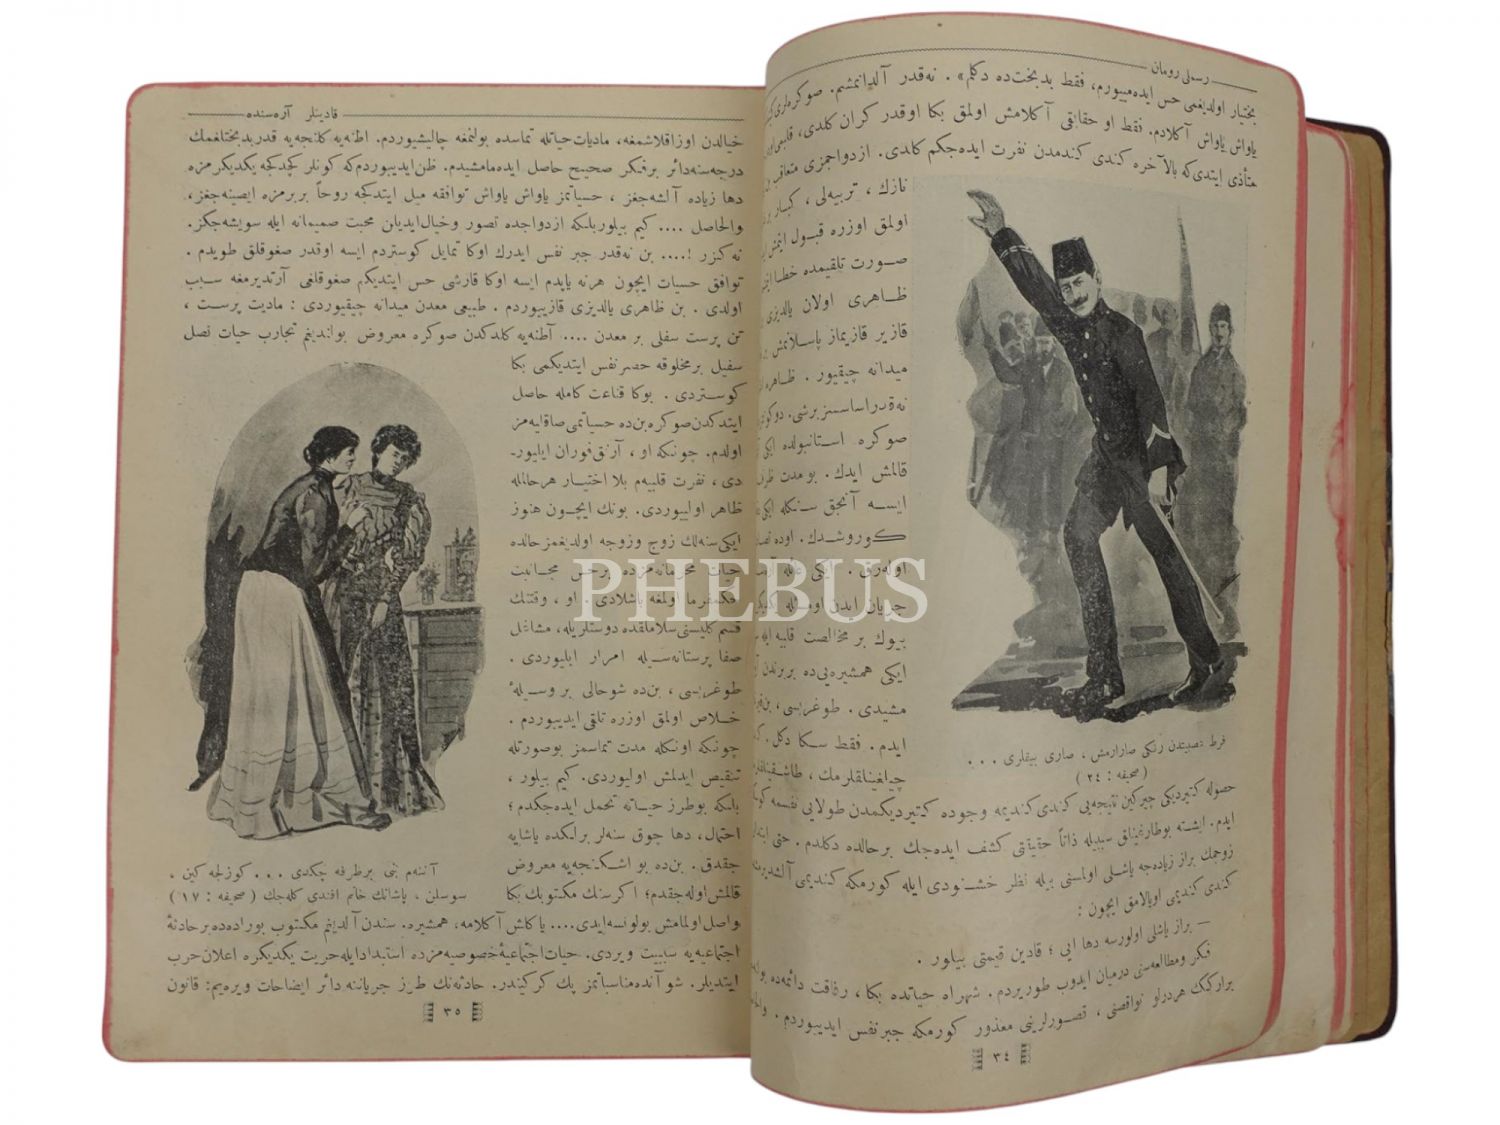 رسملی رومان
بختیار اولدیغمی حس ایده‌میورم، فقط بدبخت‌ده دکلم» . نه‌قدر آلدانمشم. صوکره‌لری
یاواش یاواش آکلادم. فقط او حقائقی آکلامش اولمق بکا اوقدر کران کلدی، قلبمی
متأذی ایتدی‌که بالآخره کندی کندمدن نفرت ایده‌جکم کلدی. ازدواجمزی متعاقب
نازك ، تربیه‌لی ، کبار
اولمق اوزره قبول ایتمش
صورت تلقیمده خطا
ظاهری اولان یالدیزی
قازیر قازیماز پاسلانمش
میدانه چیقیور . ظاهره
نه‌قدر اساسسز برشی.
صوکره استانبولده ایکی
قالمش ایدك . بو مدت
ایسه آنجق سنکله ایکی
کوروشدك. اوده
اوله‌رق . ایکی عائله
جریان ایدن اومسئله
بیوك بر مخالصت قلبیه ایله
ایکی همشیره‌یی‌ده بربرندن
مشیدی . طوغریسی ،
ایدم . فقط سکا دکل .
چیلغینلقلرمك ،
فرط عصبیتدن رنکی صارارمش ، صاری بیقلری . . .
( صحیفه : ٢٤ )
حصوله کتیردیکی چیرکین نتیجه‌یی کندی کندیمه وجوده کتیردیکمدن طولایی نفسمه
ایدم. ایشته بوطارغینلق سببیله ذاتاً حقیقتی کشف ایده‌جك برحالده دکلدم. حتی
زوجمك براز زیاده‌جه یاشلی اولمسنی بیله نظر خشنودی ایله کورمکه کندیمی
کندی کندیمی اویالامق ایچون :
— براز یاشلی اولورسه دها ایی ؛ قادین قیمتی بیلور .
فکر ومطالعه‌سنی درمیان ایدوب طوریردم. شهراه حیاتده بکا ، رفاقت دائمه‌ده
برارککك هردرلو نواقصنی ، قصورلرینی معذور کورمکه جبرنفس ایدییوردم .
٣٤
قادینلر آره‌سنده
خیالدن اوزاقلاشمغه، مادیات حیاتله تماسده بولنمغه چالیشیوردم. اطنه‌یه کلنجه‌یه قدربدبختلغمك
درجه‌سنه‌دائر برفکر صحیح حاصل ایده‌مامشیدم. ظن‌ایدییوردم‌که کونلر کچدکجه یکدیکرمزه
دها زیاده آلشه‌جغز ، حسیاتمز یاواش یاواش توافقه میل ایتدکجه روحاً بربرمزه ایصینه‌جغز،
والحاصل .... کیم بیلوربلکه ازدواجده تصور وخیال‌ایدیلن محبت صمیمانه ایله سویشه‌جکز.
نه‌کزر !.... بن نه‌قدر جبر نفس ایدرك اوکا تمایل کوستردم ایسه اوقدر صغوقلق طویدم .
توافق حسیات ایچون هرنه یاپدم ایسه اوکا قارشی حس ایتدیکم صغوقلغی آرتدیرمغه سبب
اولدی . بن ظاهری یالدیزی قازییوردم . طبیعی معدن میدانه چیقیوردی : مادیت پرست ،
تن پرست سفلی بر معدن .... آطنه‌یه کلدکدن صوکره معروض بولندیغم تجارب حیات نصل
سفیل برمخلوقه حصرنفس ایتدیکمی بکا
کوستردی . بوکا قناعت کامله حاصل
ایتدکدن‌صوکره بن‌ده حسیاتمی صاقلایه‌مز
اولدم. چونکه او ، آرتق‌فوران ایلیور-
دی ، نفرت قلبیه‌م بلا اختیار هرحالمله
ظاهر اولییوردی. بونك ایچون هنوز
ایکی‌سنه‌لك زوج وزوجه اولدیغمز حالده
حیات محرمانه‌مزده برحس مجانبت
حکمفرما اولمغه باشلادی . او ، وقتنك
قسم کلیسنی‌سلاملقده دوستلریله، مشاغل
صفا پرستانه‌سیله امرار ایلیوردی .
طوغریسی ، بن‌ده شوحالی بر وسیلهٔ
خلاص اولمق اوزره تلقی ایدییوردم .
چونکه اونکله مدت تماسمز بوصورتله
تنقیص ایدلمش اولیوردی. کیم بیلور ،
بلکه بوطرز حیاته تحمل ایده‌جکدم ؛
احتمال، دها چوق سنه‌لر برلکده یاشایه
جقدق. بن‌ده بو اشکنجه‌یه معروض
قالمش‌اوله‌جقدم؛ اکر سنك مکتوبك بکا
آننه‌م بنی برطرفه چکدی . . . کوزلجه کین ،
سوسلن ، پاشانك خانم افندی کله‌جك ( صحیفه : ١٧ )
واصل اولمامش بولونسه‌ایدی.... یاکاش آکلامه، همشیره. سندن آلدیغم مکتوب بوراده‌ده برحادثهٔ
اجتماعیه‌یه سببیت ویردی. حیات‌اجتماعیهٔ خصوصیه‌مزده استبدادایله‌حریت یکدیکره اعلان حرب
ایتدیلر. شو آنده‌مناسباتمز پك کرکیندر. حادثه‌نك طرز جریاننه دائر ایضاحات ویره‌یم: قانون
٣٥
PHEBUS